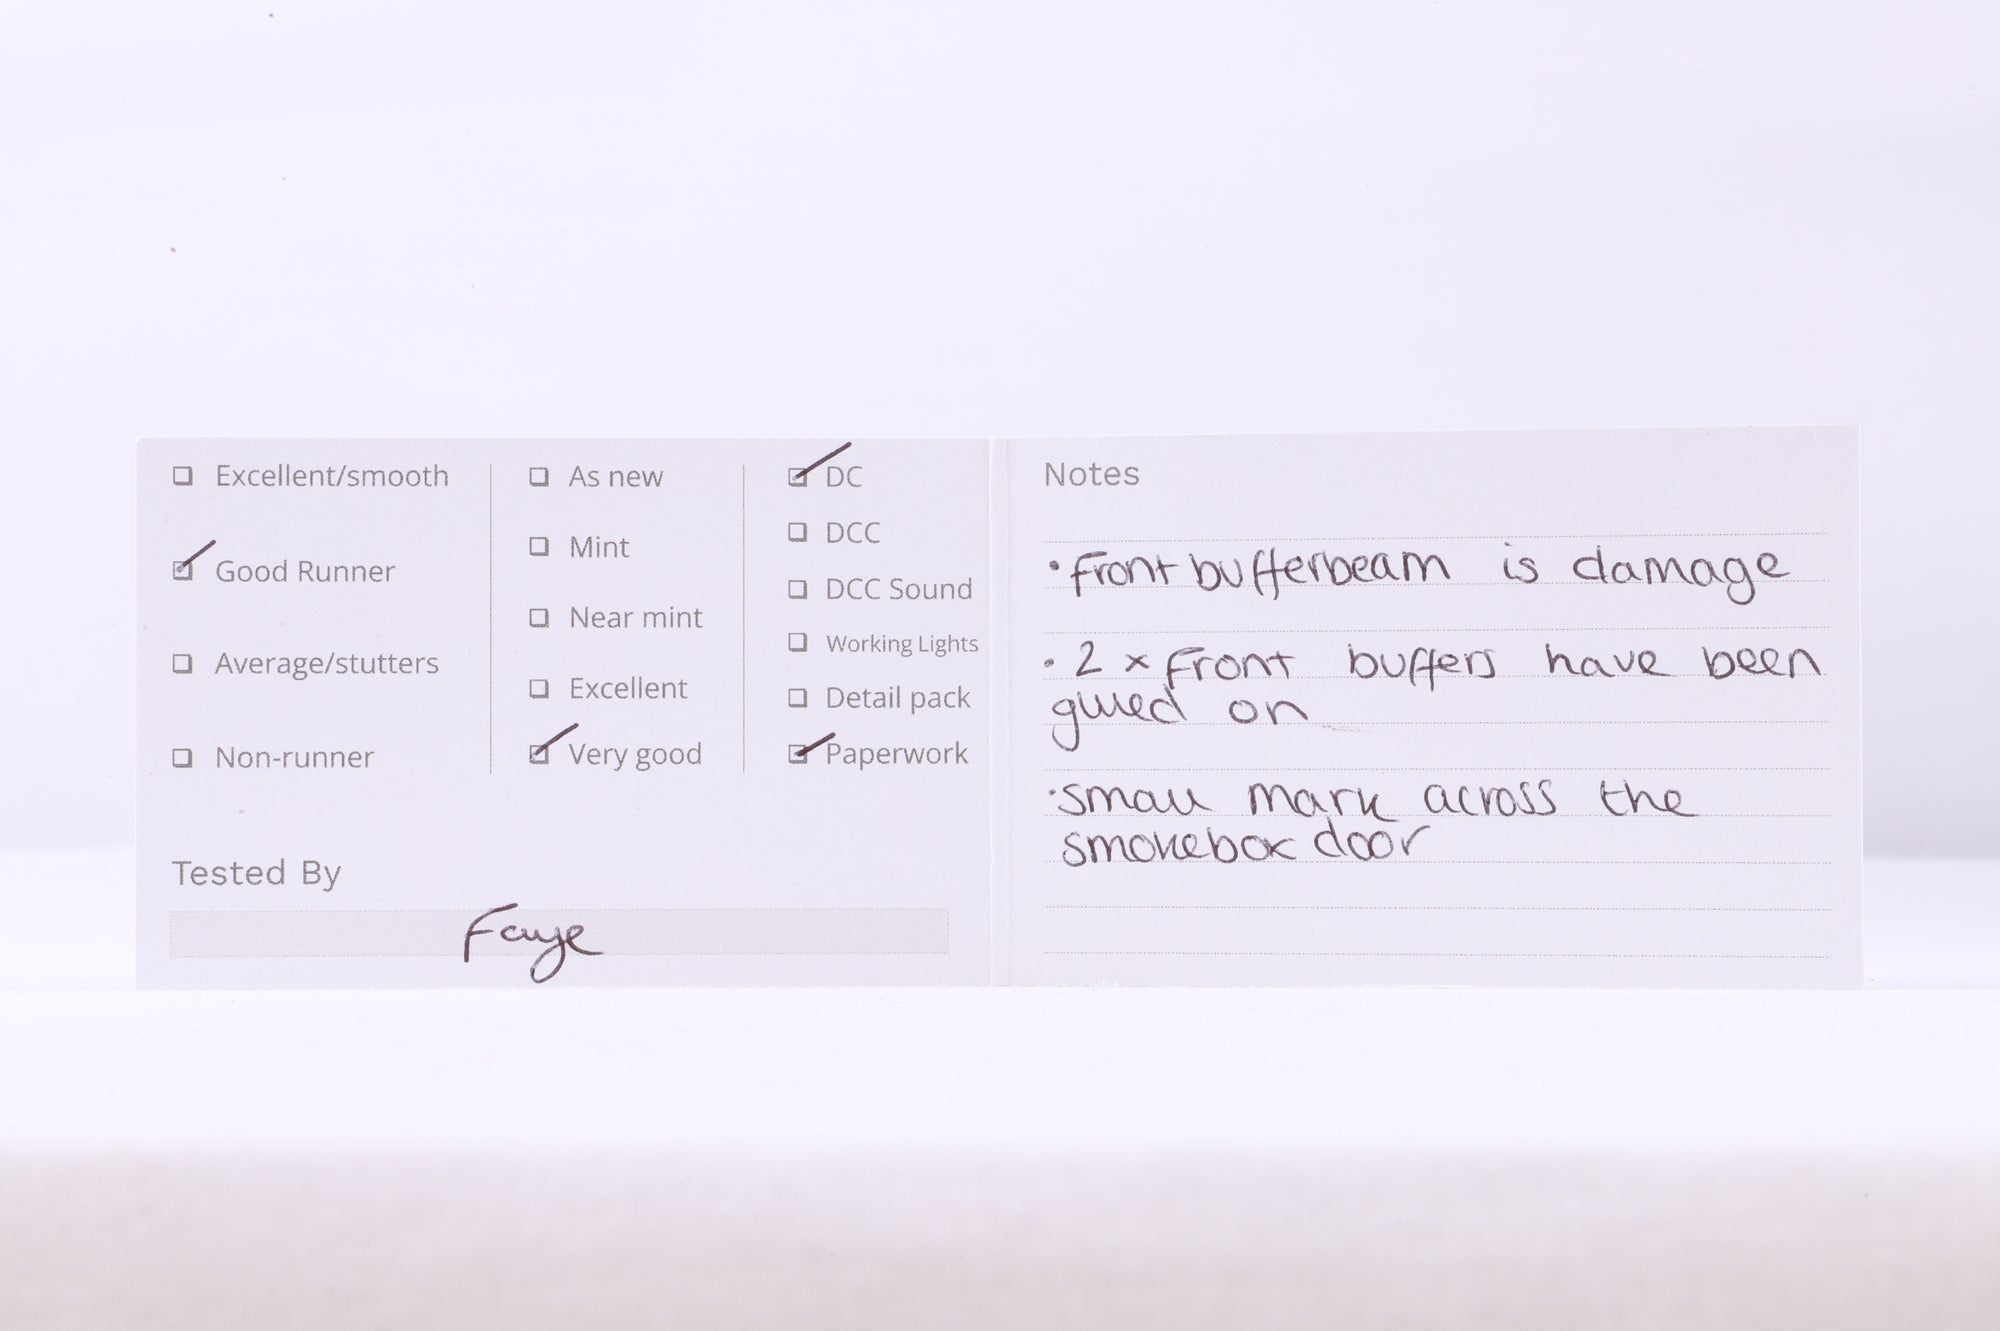 Excellent/smooth
Good Runner
Average/stutters
Non-runner
As new
Mint
Near mint
Excellent
Very good
DC
DCC
DCC Sound
Working Lights
Detail pack
Paperwork
Tested By
Faye
Notes
• Front bufferbeam is damage
• 2 x Front buffers have been
glued on
• small mark across the
smokebox door